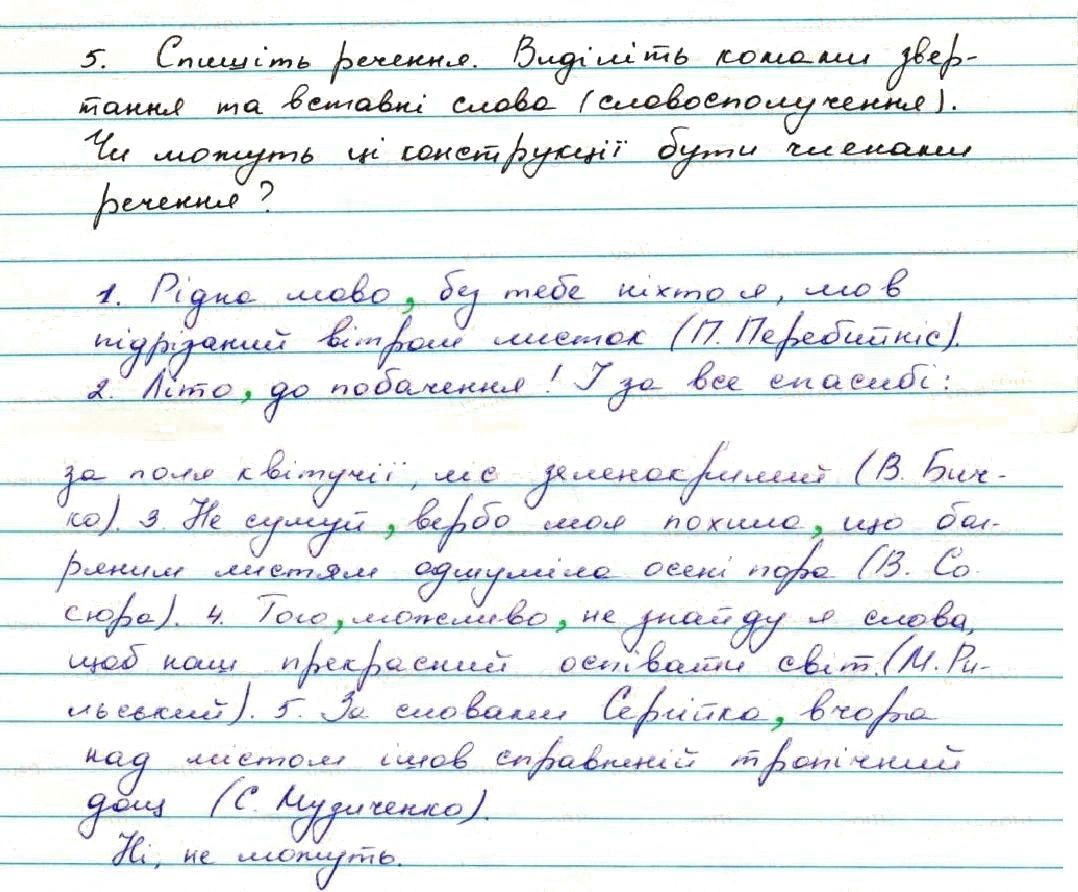 5. Спишіть речення. Виділіть комами звер-
тання та вставні слова (словосполучення).
Чи можуть ці конструкції бути членами
речення?
1. Рідна мово, без тебе ніхто я, мов
підрізаний вітром листок (П. Перебийніс).
2. Літо, до побачення! І за все спасибі:
за поля квітучії, ліс зеленокрилий (В. Бич-
ко). 3. Не сумуй, вербо моя похила, що баг-
ряним листям одшуміла осені пора (В. Со
сюра). 4. Того, можливо, не знайду я слова,
щоб наш прекрасний оспівати світ. (М. Ри-
льський). 5. За словами Сергійка, вчора
над містом ішов справжній тропічний
дощ (С. Мудиченко).
Ні, не можуть.